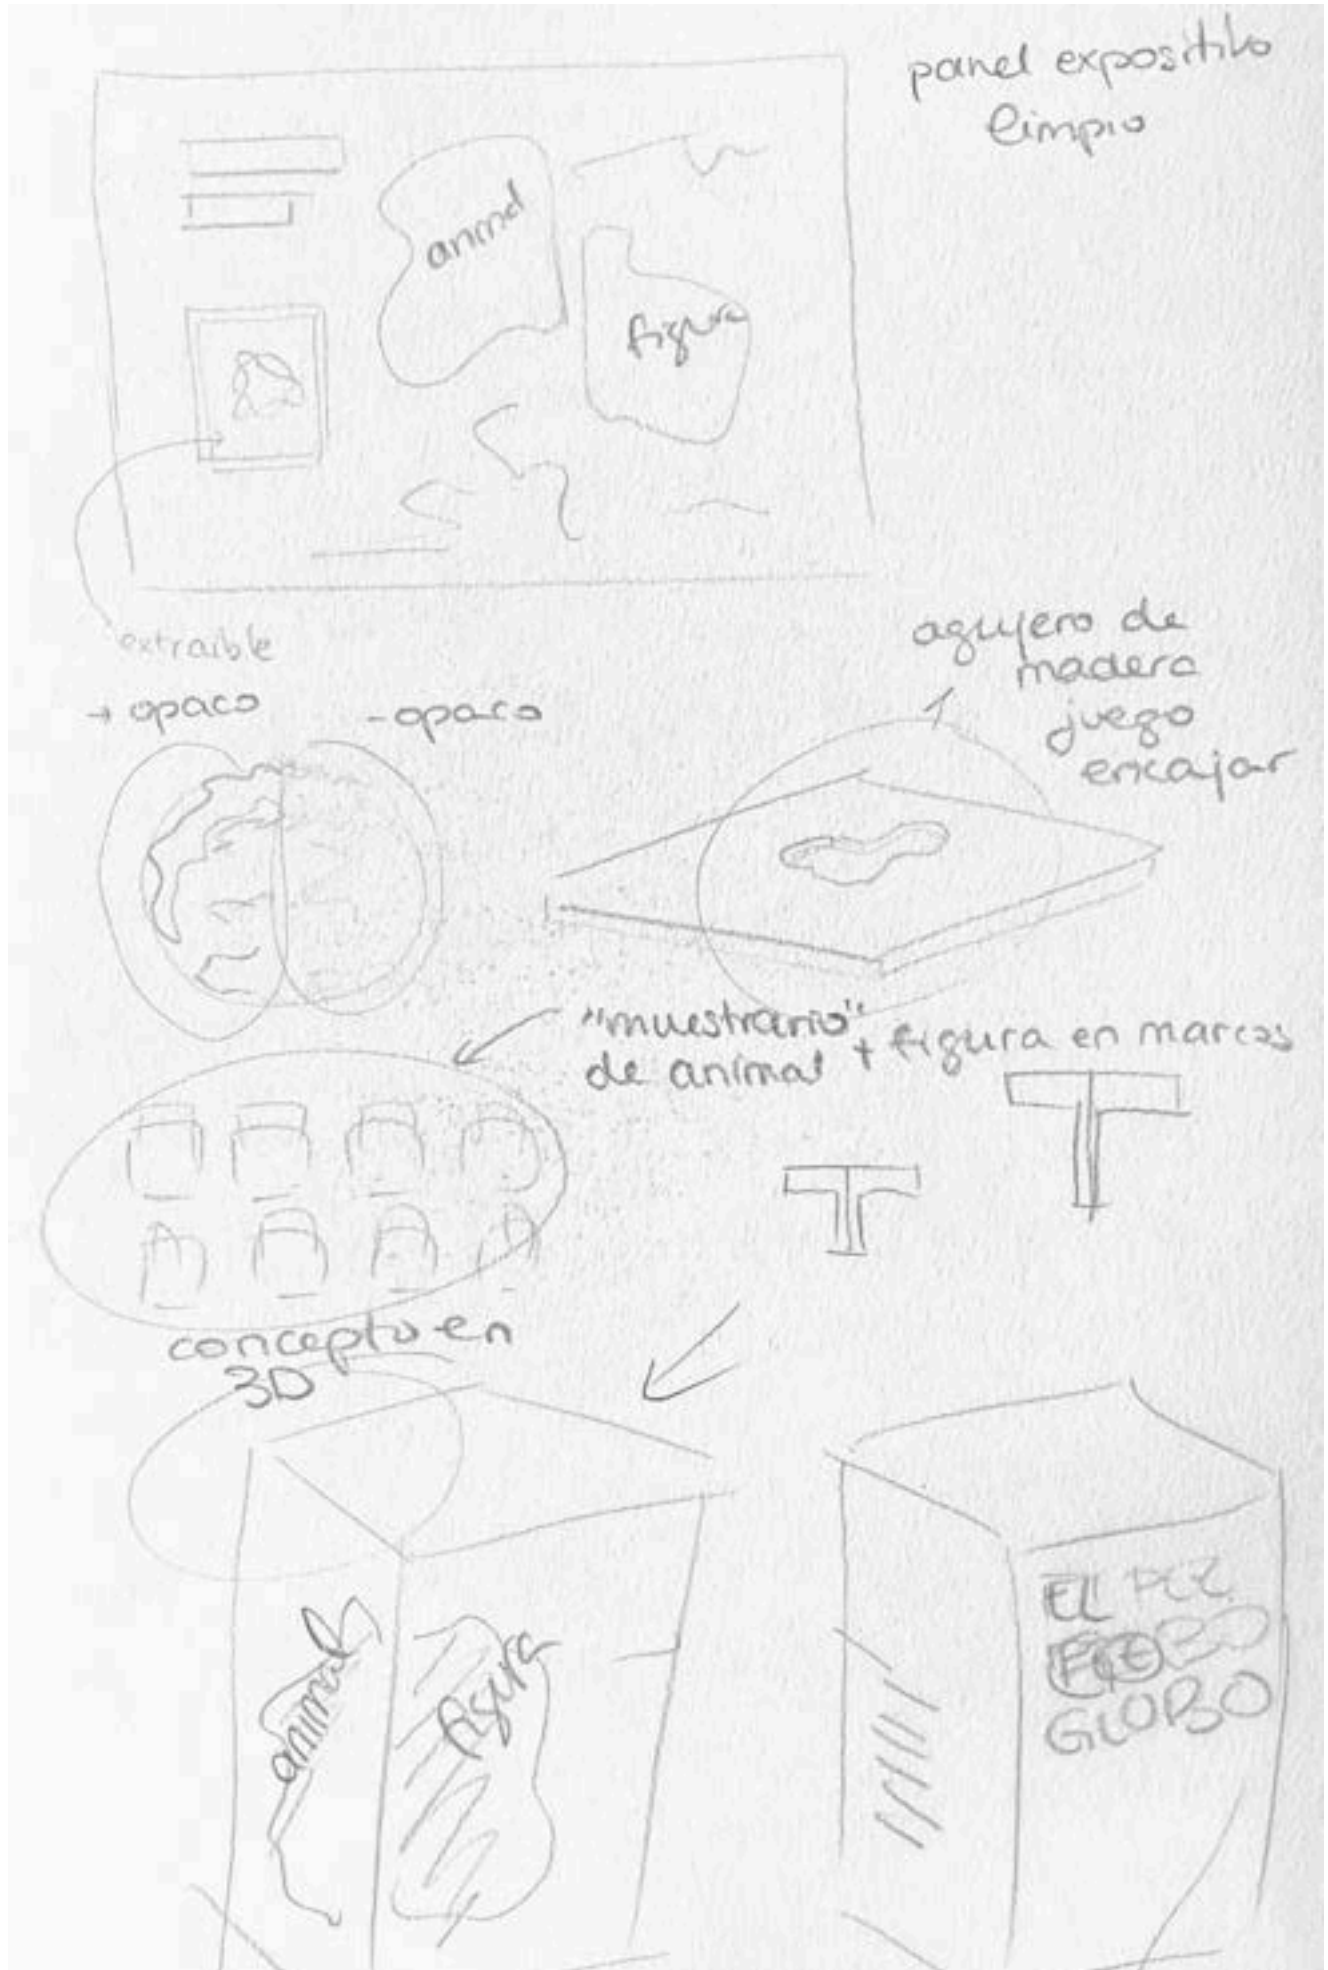 panel expositivo
limpio
animal
figura
extraible
+ opaco
- opaco
agujero de
madera
juego
encajar
"muestrario"
de animal + figura en marcos
concepto en
3D
animal
figura
EL PEZ
GLOBO